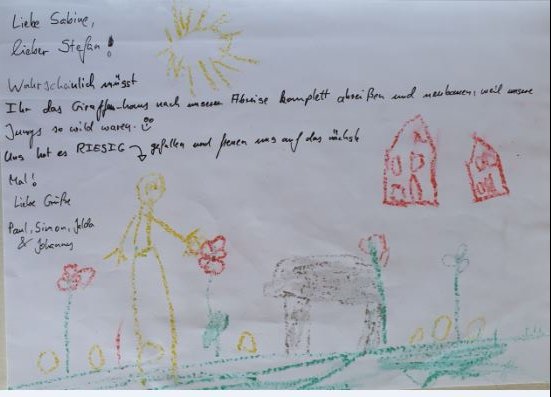 Liebe Sabine,
lieber Stefan!
Wahrscheinlich müsst
Ihr das Giraffenhaus nach unserer Abreise komplett abreißen und neubauen, weil unsere
Jungs so wild waren.
Uns hat es RIESIG gefallen und freuen uns auf das nächste
Mal!
Liebe Grüße
Paul, Simon,
& Johannes